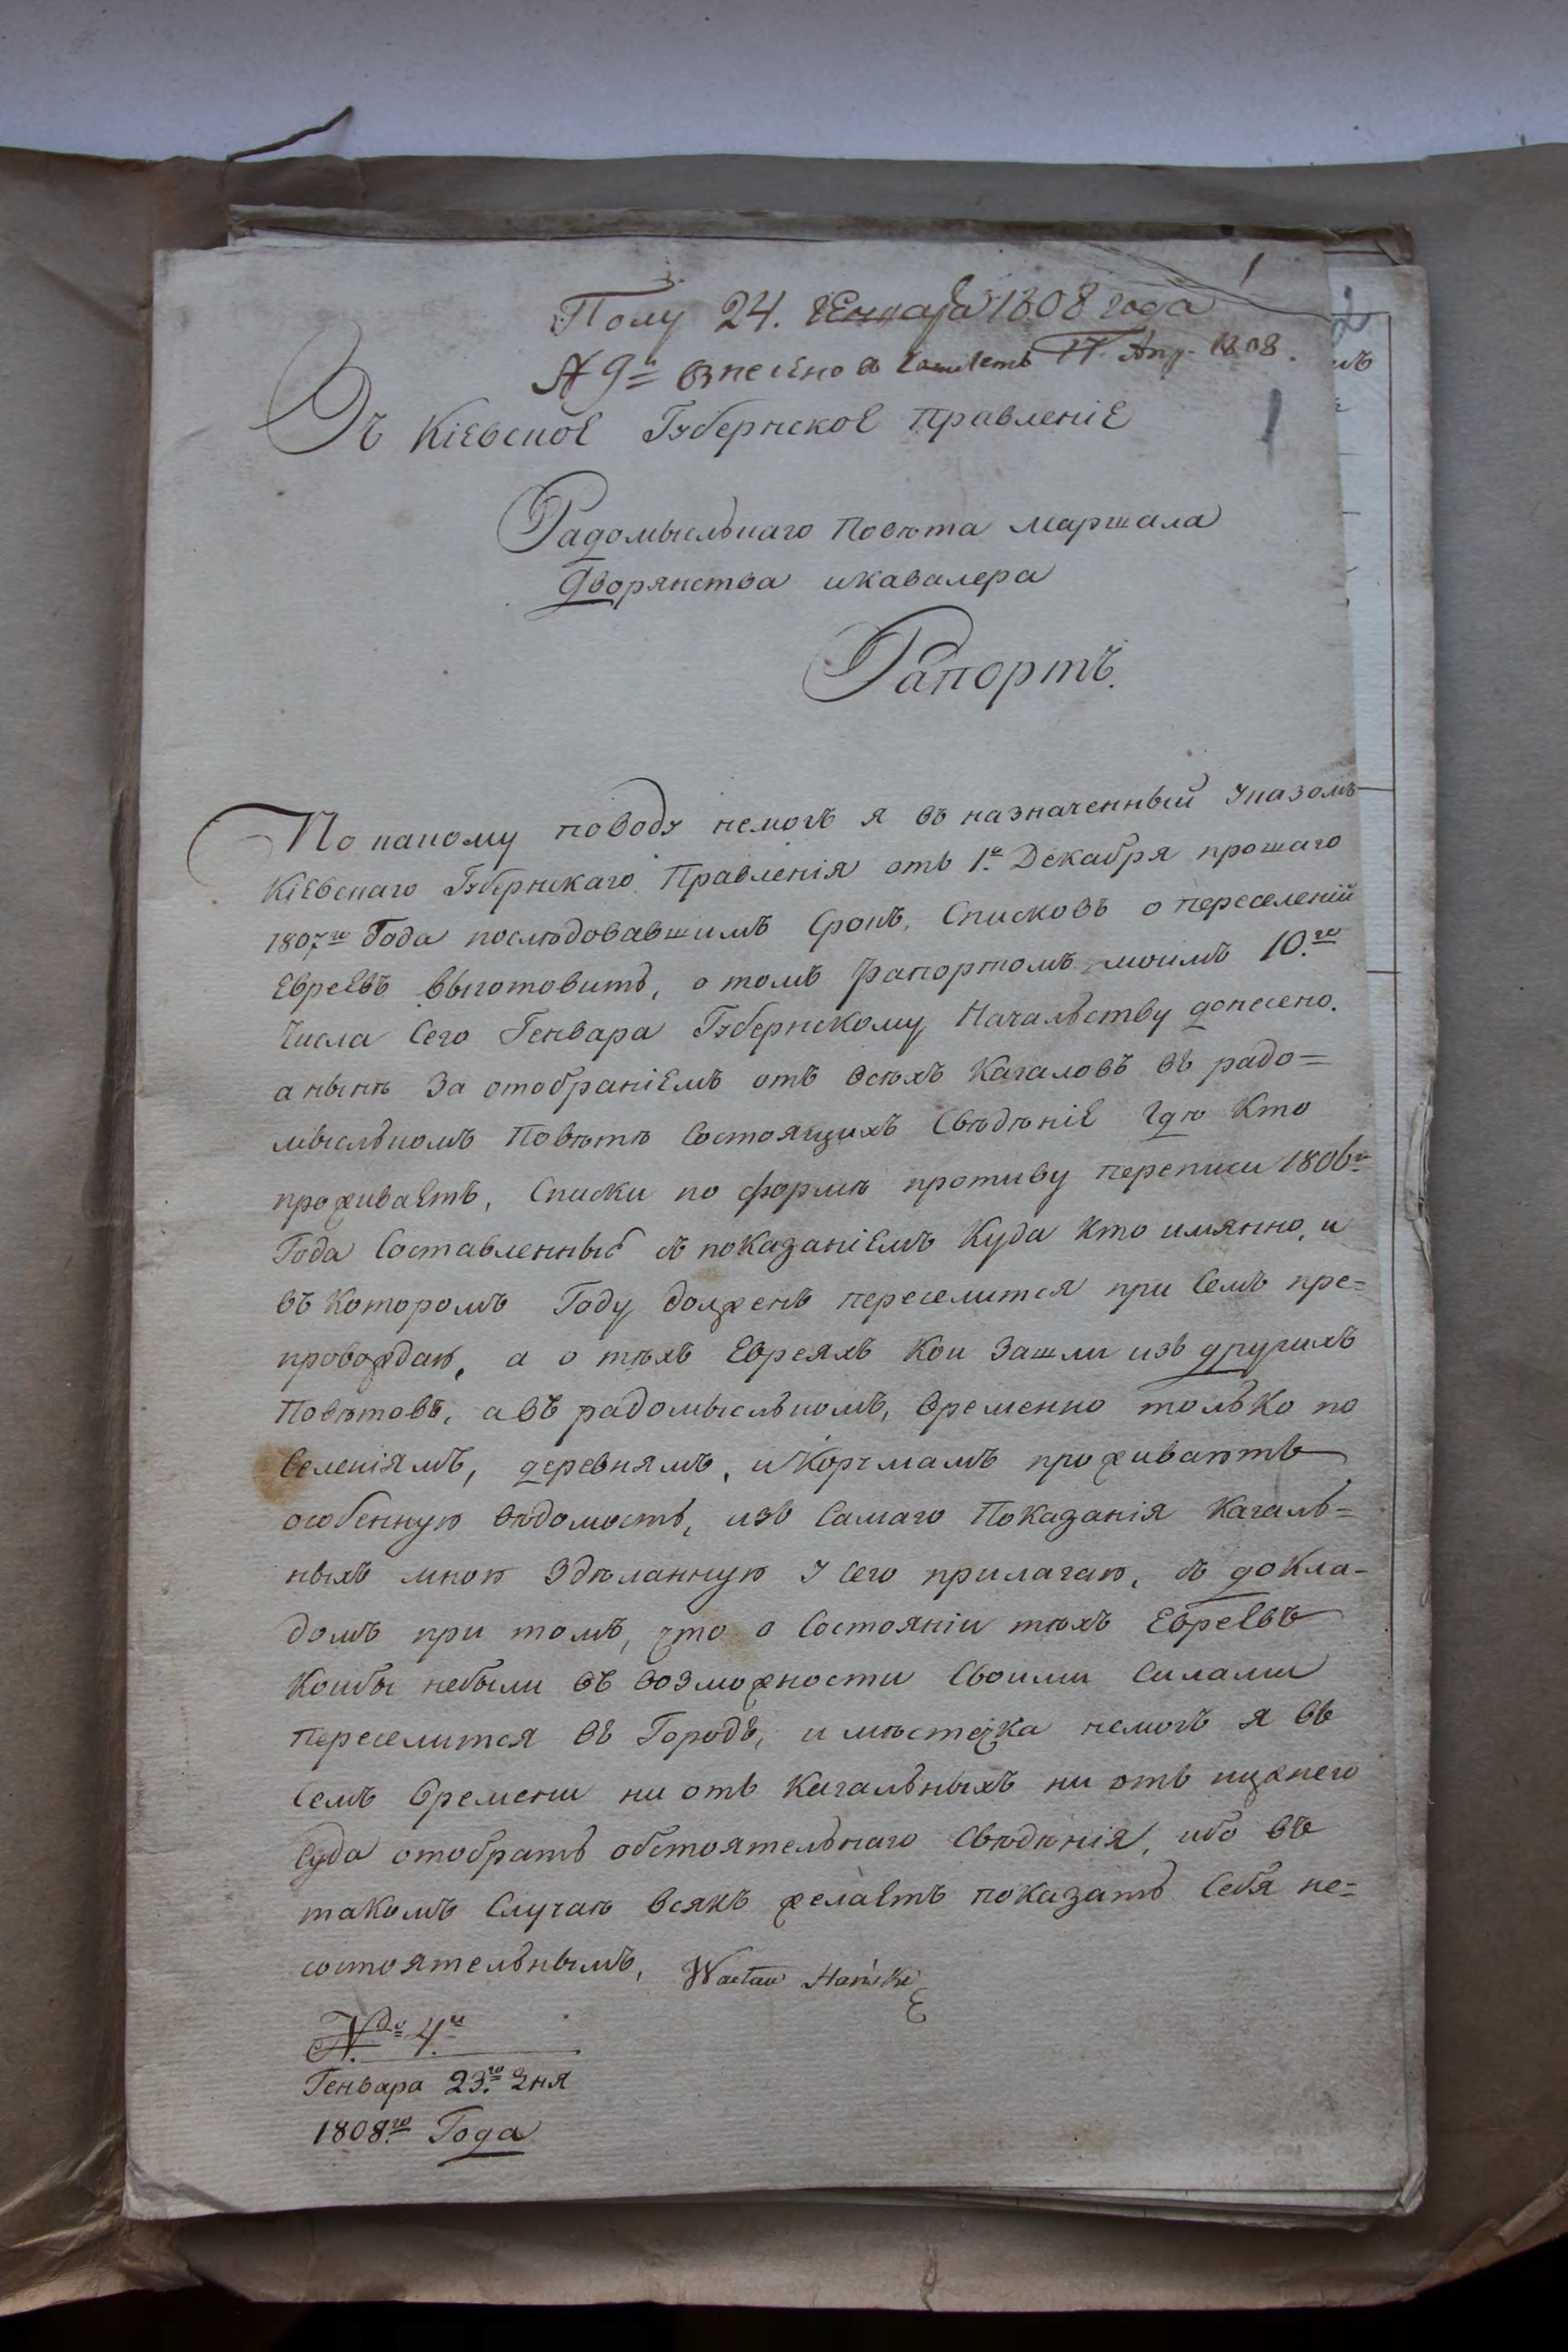 1
Полу 24. Генваря 1808 года
№ 9 внесено в Комитетъ 17 Апр. 1808.
1
Въ Кіевское Губернское Правленіе
Радомысльнаго Повѣта Маршала
Дворянства и кавалера
Рапортъ.
По какому поводу немогъ я въ назначенный указомъ
Кіевскаго Губернскаго Правленія отъ 1го Декабря прошаго
1807го Года послѣдовавшимъ Срокъ, Списковъ о переселеній
Евреевъ выготовить, о томъ рапортомъ моимъ 10.го
Числа Сего Генвара Губернскому Начальству донесено.
а нынѣ За отобраніемъ отъ всѣхъ Кагаловъ въ радо=
мысльномъ Повѣтѣ Состоящихъ Свѣдѣніе Гдѣ Кто
проживаетъ, Списки по формѣ противу переписи 1806го
Года Составленные съ показаніемъ Куда Кто имянно, и
въ Которомъ Году долженъ переселится при Семъ пре=
провождаю, а о тѣхъ Евреяхъ Кои Зашли изъ другихъ
Повѣтовъ, а въ радомысльномъ, временно только по
Селеніямъ, деревнямъ, и Корчмамъ проживаютъ
особенную вѣдомость, изъ Самаго Показанія Кагаль=
ныхъ мною Здѣланную у Сего прилагаю, съ докла-
домъ при томъ, что о Состояніи тѣхъ Евреевъ
Коибы небыли въ возможности Своими Силами
переселится въ Городъ, и мѣстечка немогъ я въ
Семъ Времени ни отъ Кагальныхъ ни отъ нижнего
Суда отобрать обстоятельнаго Свѣдѣнія, ибо въ
такомъ Случаю всякъ желаетъ показать Себя не=
состоятельнымъ, Wacław Hański
№ 4й
Генвара 23.го Дня
1808.го Года